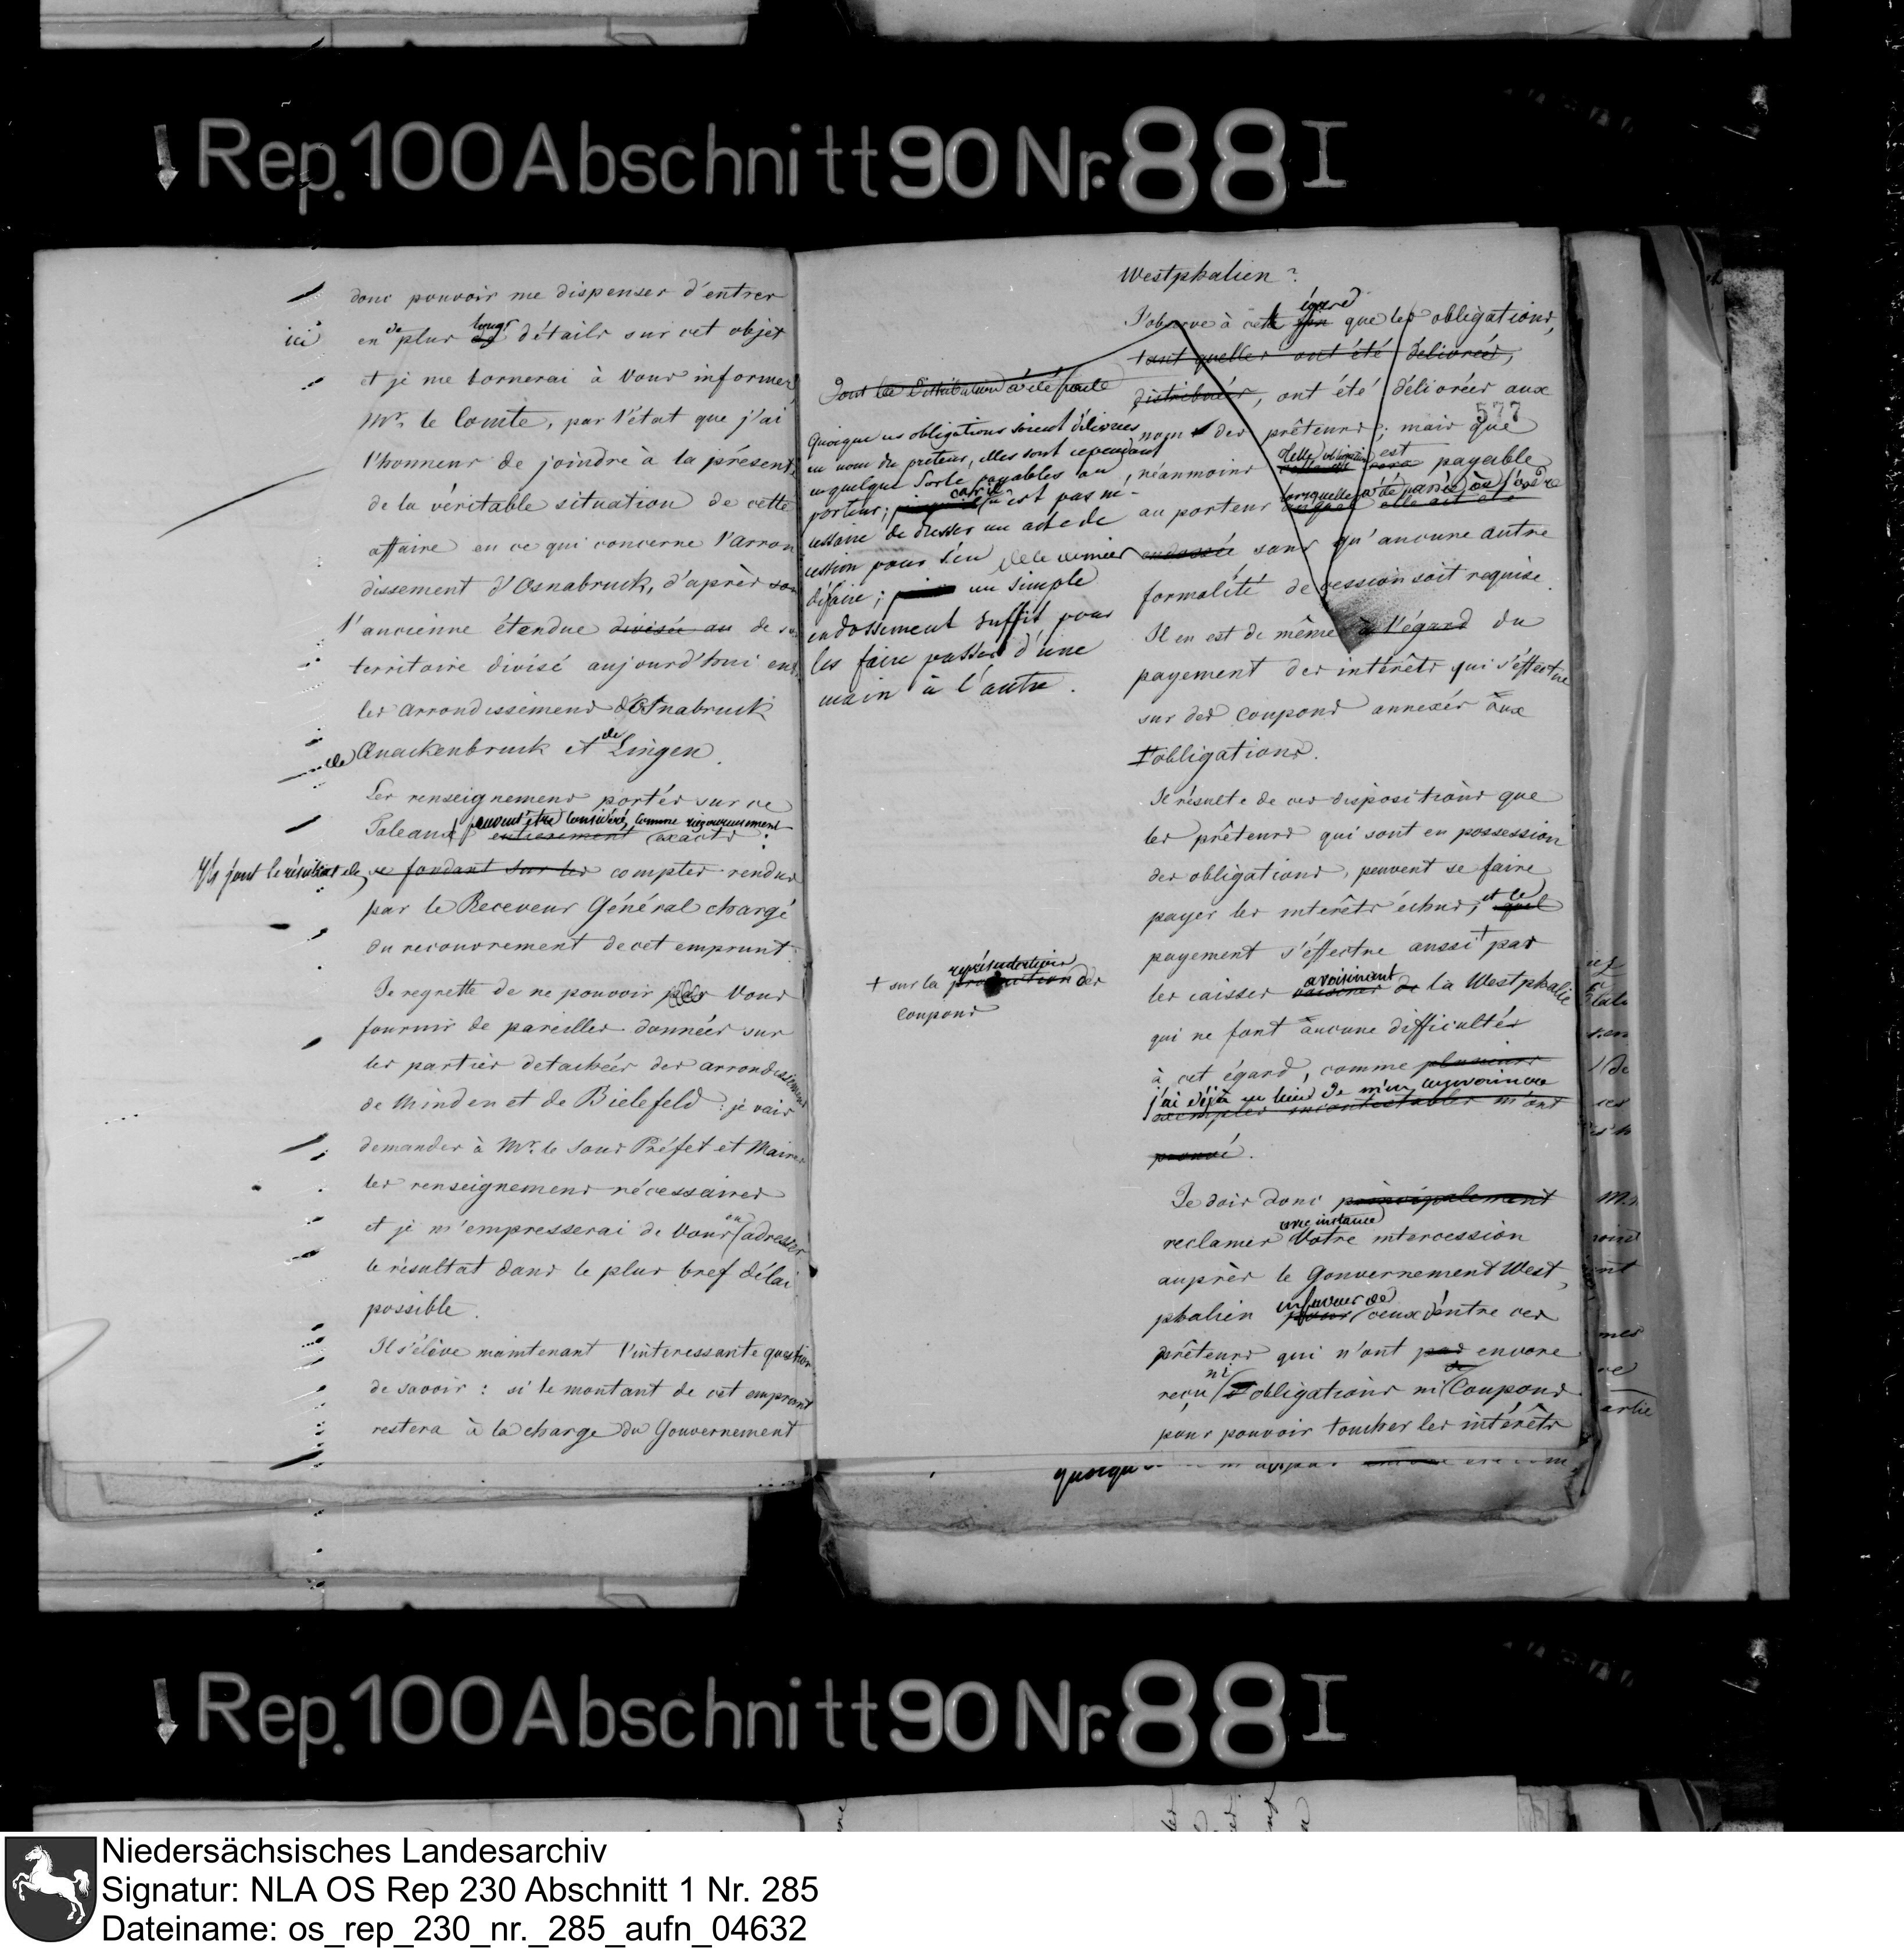 Rep. 100 Abschnitt 90 Nr. 88 I
donc pouvoir me dispenser d'entrer
ici en de plus longs détails sur cet objet
et je me bornerai à Vous informer,
Mr. le Comte, par l'état que j'ai
l'honneur de joindre à la présente
de la véritable situation de cette
affaire en ce qui concerne l'arron
dissement d'Osnabruck, d'après son
l'ancienne étendue divisée au de son
territoire divisé aujourd'hui en
les arrondissemens d'Osnabruck
de Quackenbruck et de Lingen.
Les renseignemens portés sur ce
Tableaux peuvent être considérés comme rigoureusement
entierement exacts:
Ils sont le résultat des
se fondant sur les comptes rendus
par le Receveur Général chargé
du recouvrement de cet emprunt.
Je regrette de ne pouvoir pas Vous
fournir de pareilles données sur
les parties detachées des arrondissemens
de Minden et de Bielefeld: je vais
demander à Mr. le Sous Préfet et Maires
les renseignemens nécessaires
et je m'empresserai de Vous en adresser
le résultat dans le plus bref délai
possible.
Il s'élève maintenant l'interessante question
de savoir: si le montant de cet emprunt
restera à la charge du Gouvernement
Westphalien?
J'observe à cet égard que les obligations,
tant quelles ont été délivrées,
dont la distribution a été faite
distribuées, ont été délivrées aux
577
nom des prêteurs; mais que
néanmoins cette obligation est payable
au porteur lorsqu'elle a été passée à l'ordre
endossée sans qu'aucune autre
formalité de cession soit requise.
Quoique ces obligations soient délivrées
au nom du preteur, elles sont cependant
en quelque sorte payables au
porteur; car il n'est pas né-
cessaire de dresser un acte de
cession pour s'en
défaire; un simple
endossement suffit pour
les faire passer d'une
main à l'autre.
Il en est de même à l'égard du
payement des intérêts qui s'éffectue
sur des Coupons annexés aux
obligations.
Il résulte de ces dispositions que
les prêteurs qui sont en possession
des obligations, peuvent se faire
payer les intérêts échus; et le
payement s'éffectue aussi + par
+ sur la représentation des
Coupons
les caisses avoisinant la Westphalie
qui ne font aucune difficultés
à cet égard, comme plusieurs
j'ai déjà eu lieu de m'en convaincre
exemples incontestables m'ont
prouvé.
Je dois donc principalement
reclamer avec instance Votre intercession
auprès le Gouvernement West,
phalien en faveur de pour ceux d'entre ces
prêteurs qui n'ont pas encore
reçu ni obligations ni de Coupons
pour pouvoir toucher les intérêts
quoique
Rep. 100 Abschnitt 90 Nr. 88 I
Niedersächsisches Landesarchiv
Signatur: NLA OS Rep 230 Abschnitt 1 Nr. 285
Dateiname: os_rep_230_nr._285_aufn_04632